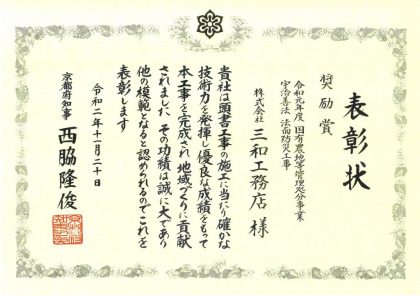 表彰状
奨励賞
令和元年度 国有農地等管理処分事業
宇治善法 法面防災工事
株式会社 三和工務店 様
貴社は頭書工事の施工に当たり確かな
技術力を発揮し優良な成績をもって
本工事を完成され地域づくりに貢献
されました その功績は誠に大であり
他の模範となると認められるのでこれを
表彰します
令和二年十一月二十日
京都府知事 西脇隆俊